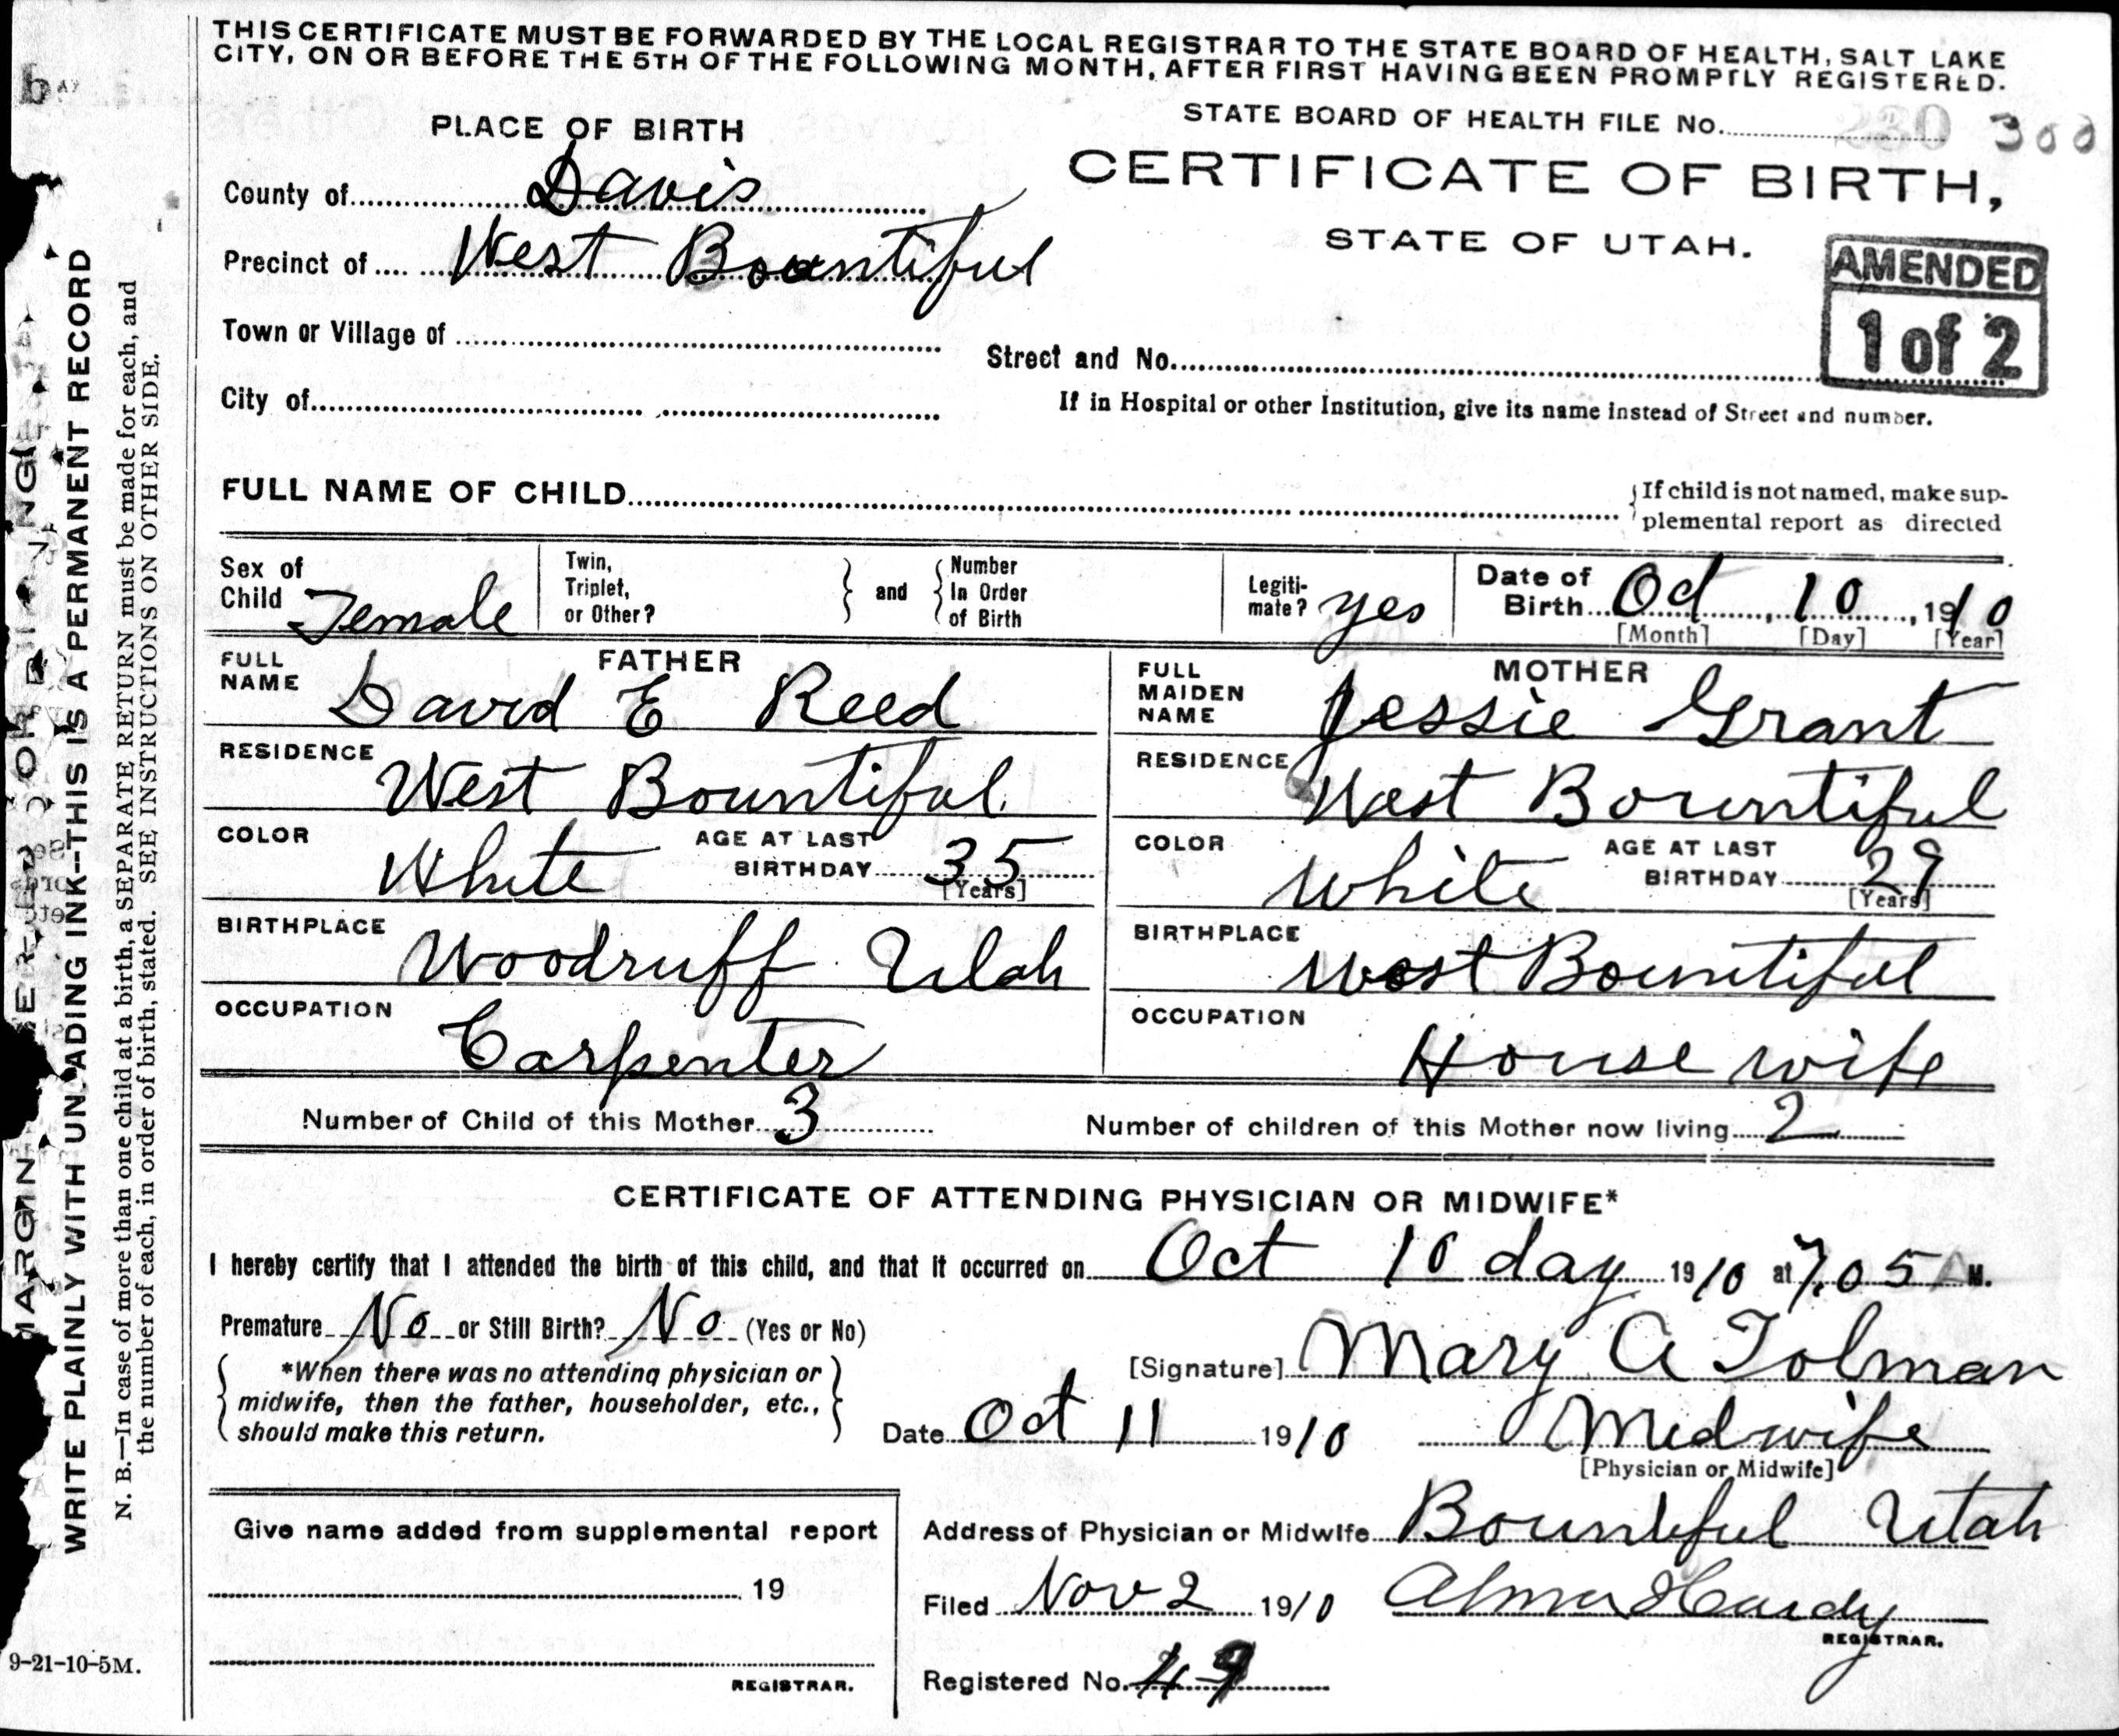 THIS CERTIFICATE MUST BE FORWARDED BY THE LOCAL REGISTRAR TO THE STATE BOARD OF HEALTH, SALT LAKE
CITY, ON OR BEFORE THE 5TH OF THE FOLLOWING MONTH, AFTER FIRST HAVING BEEN PROMPTLY REGISTERED.
STATE BOARD OF HEALTH FILE No. 300
PLACE OF BIRTH
CERTIFICATE OF BIRTH,
STATE OF UTAH.
AMENDED
1 of 2
County of Davis
Precinct of West Bountiful
Town or Village of
Street and No.
City of
If in Hospital or other Institution, give its name instead of Street and number.
FULL NAME OF CHILD
If child is not named, make sup-
plemental report as directed
Sex of Child Female
Twin, Triplet, or Other?
and
Number In Order of Birth
Legiti-mate? yes
Date of Birth Oct, 10, 1910
[Month] [Day] [Year]
FATHER
FULL NAME David E Reed
RESIDENCE West Bountiful
COLOR White
AGE AT LAST BIRTHDAY 35
[Years]
BIRTHPLACE Woodruff Utah
OCCUPATION Carpenter
MOTHER
FULL MAIDEN NAME Jessie Grant
RESIDENCE West Bountiful
COLOR White
AGE AT LAST BIRTHDAY 29
[Years]
BIRTHPLACE West Bountiful
OCCUPATION House wife
Number of Child of this Mother 3
Number of children of this Mother now living 2
CERTIFICATE OF ATTENDING PHYSICIAN OR MIDWIFE*
I hereby certify that I attended the birth of this child, and that it occurred on Oct 10 day 1910 at 7.05 A M.
Premature No or Still Birth? No (Yes or No)
*When there was no attending physician or
midwife, then the father, householder, etc.,
should make this return.
[Signature] Mary A Tolman
Date Oct 11 1910
Midwife
[Physician or Midwife]
Give name added from supplemental report
19
REGISTRAR.
Address of Physician or Midwife Bountiful Utah
Filed Nov 2 1910 Alma Hardy
REGISTRAR.
Registered No. 49
9-21-10-5M.
WRITE PLAINLY WITH UNFADING INK--THIS IS A PERMANENT RECORD
N. B.—In case of more than one child at a birth, a SEPARATE RETURN must be made for each, and
the number of each, in order of birth, stated. SEE INSTRUCTIONS ON OTHER SIDE.